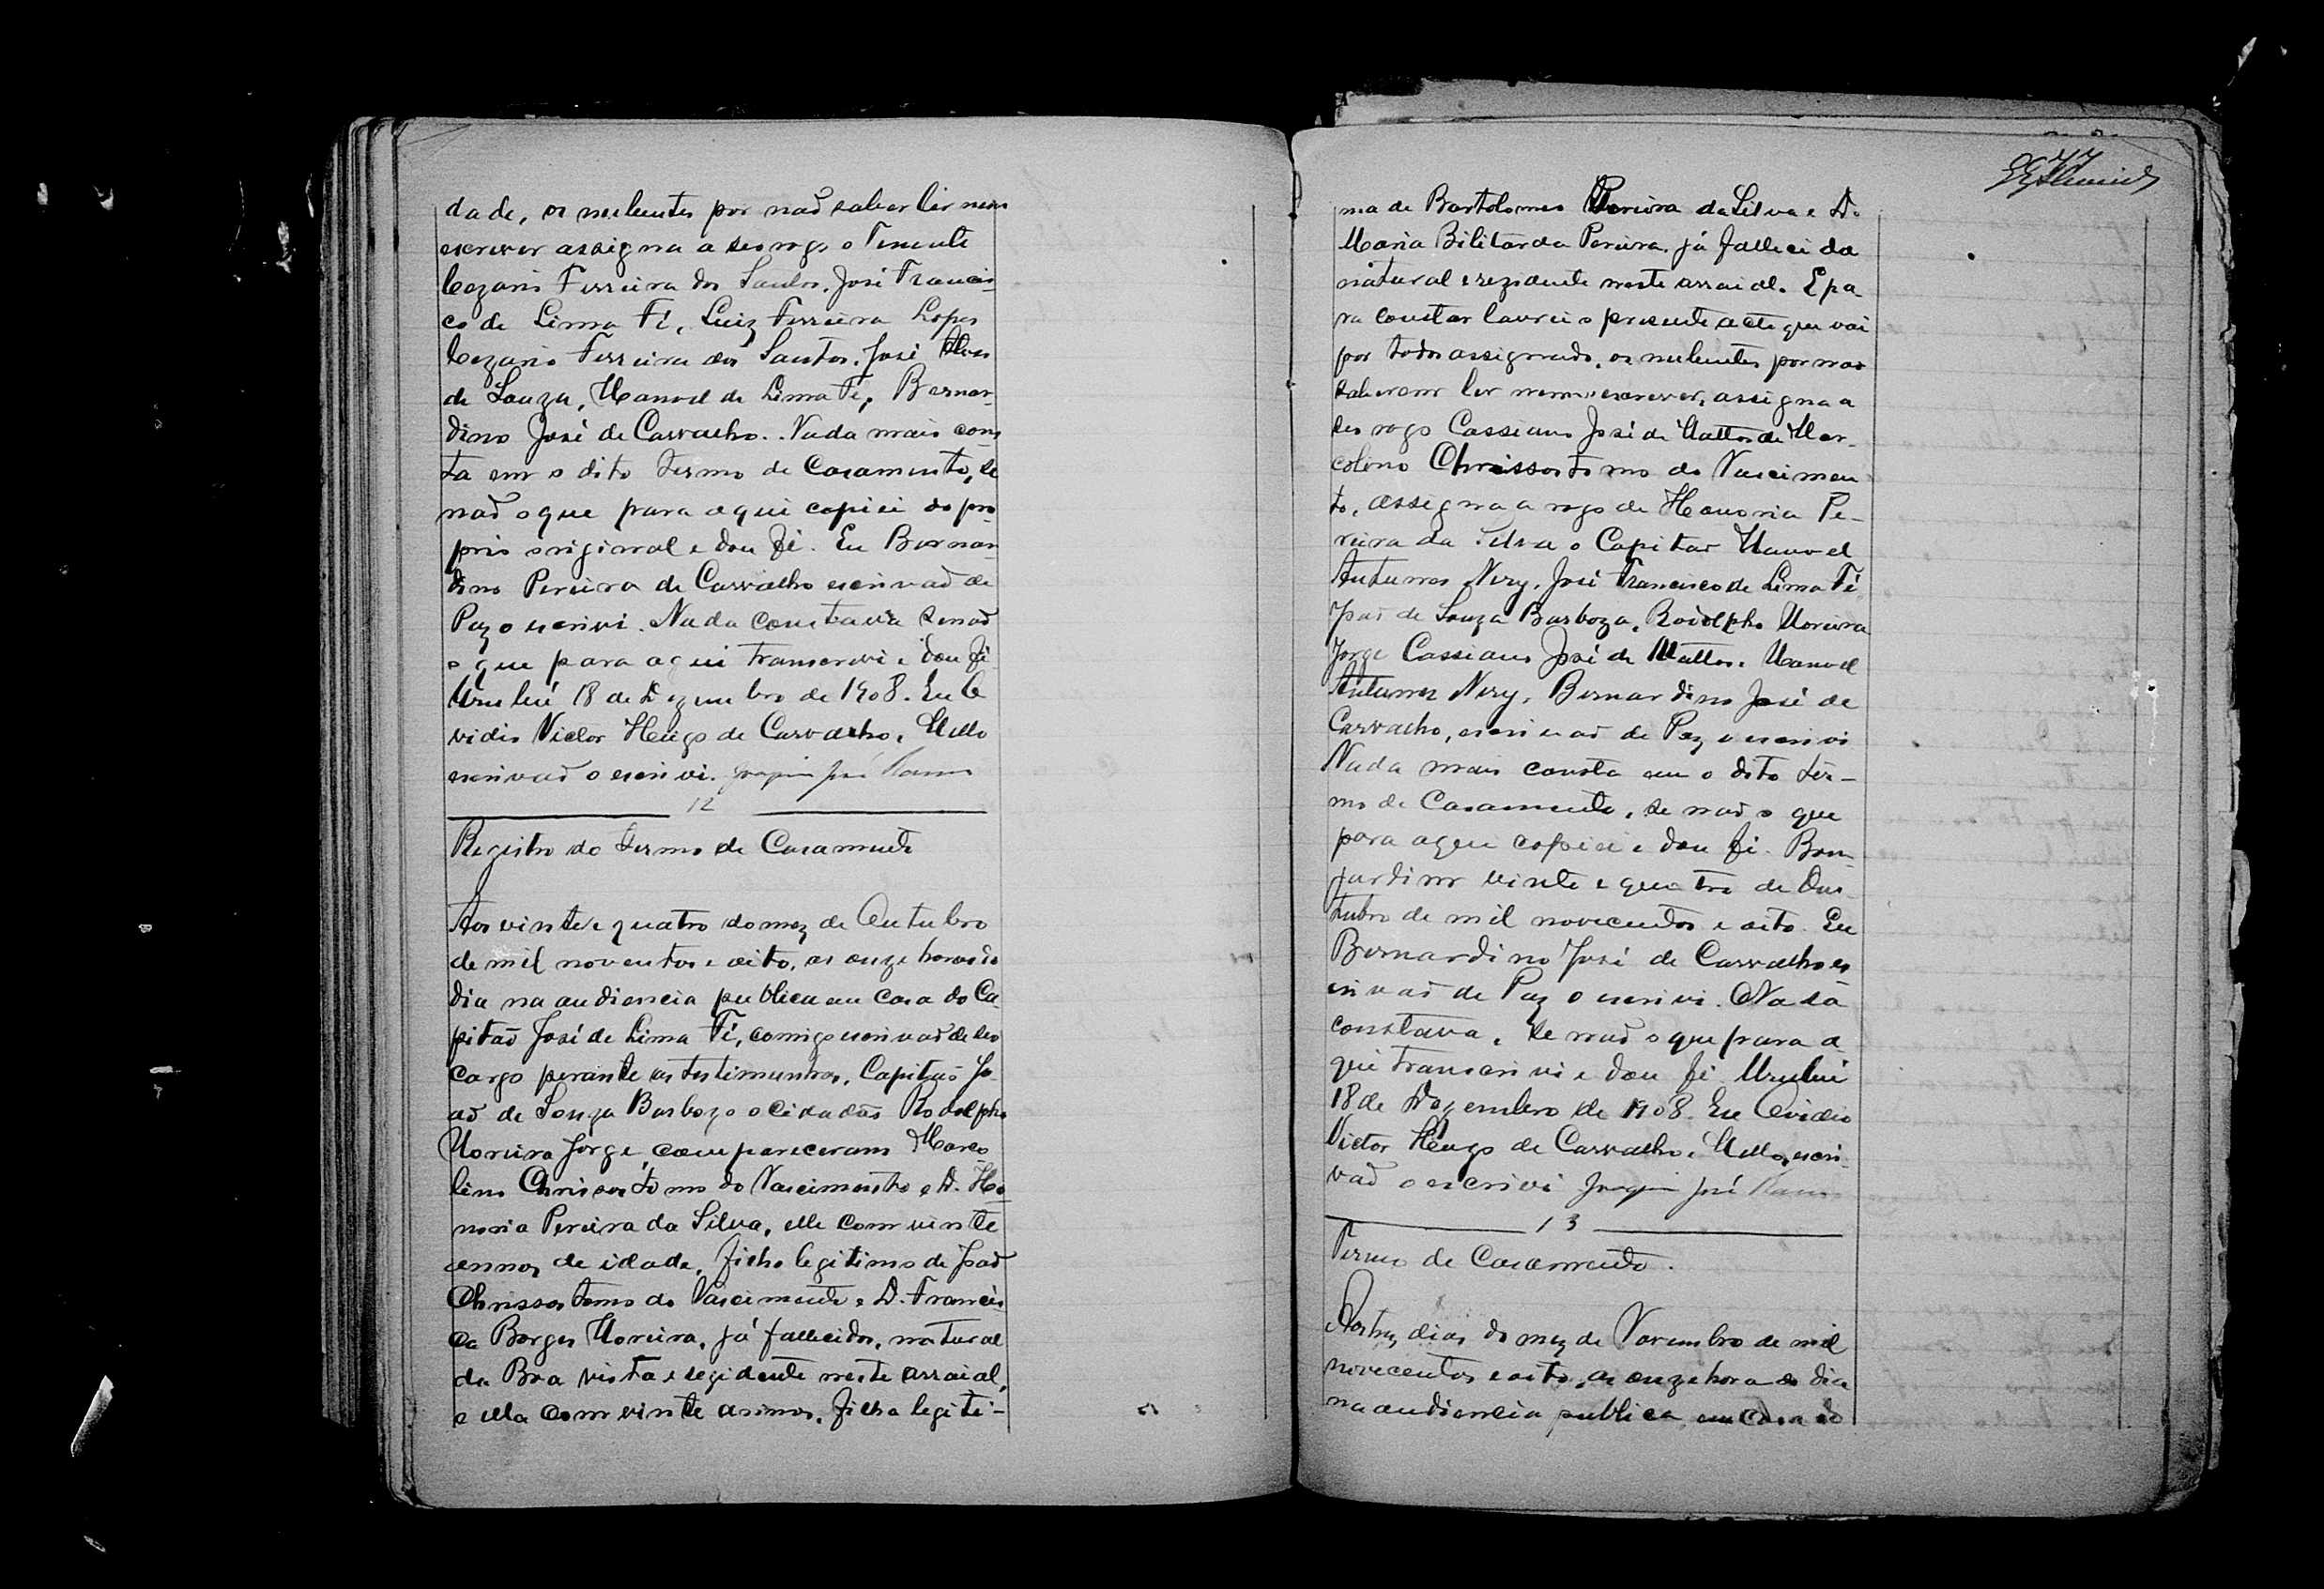 dade, os nubentes por não saber ler nem
escrever assigna a seo rogo o Tenente
Cezario Ferreira dos Santos, José Francis-
co de Lima Fé, Luiz Ferreira Lopes
Cezario Ferreira dos Santos, José Alves
de Souza, Manoel de Lima Fé, Bernar-
dino José de Carvalho. Nada mais cons-
ta em o dito termo de Casamento, se
não o que para aqui copiei do pro-
prio original e dou fé. Eu Bernar-
dino Pereira de Carvalho escrivão de
Paz o escrivi. Nada constava senão
o que para aqui transcrevi e dou fé
Urussuhi 18 de Dezembro de 1908. Eu O
vidio Victor Hugo de Carvalho e Mello
escrivão o escrivi. Joaquim José
12
Registro do termo de Casamento
Aos vinte e quatro do mez de Outubro
de mil noventos e oito, as onze horas do
dia na audiencia publica em casa do Ca-
pitão José de Lima Fé, comigo escrivão de seo
cargo perante as testimunhas, Capitão Jo-
ão de Souza Barbozo o Cidadão Rodolpho
Moreira Jorge, compareceram Marco-
lino Chrisostomo do Nascimento e D. Ho-
noria Pereira da Silva, elle com vinte
annos de idade, filho legitimo de João
Chrissostomo do Nascimento e D. Francis-
ca Borges Moreira, já fallecidos, natural
da Boa vista e rezidente neste arraial,
e ella com vinte annos, filha legiti-
77
ma de Bartolomeo Pereira da Silva e D.
Maria Bilitarda Pereira, já fallecida
natural e rezidente neste arraial. E pa
ra constar lavrei o presente acto que vai
por todos assignado, os nubentes por não
saberem ler nem escrever, assigna a
seo rogo Cassiano José de Mattos de Mar-
colino Chrissostomo do Nascimen
to, assigna a rogo de Honoria Pe-
reira da Silva o Capitão Manoel
Antunes Nery, José Francisco de Lima Fé
João de Souza Barboza, Rodolpho Moreira
Jorge Cassiano José de Mattos, Manoel
Antunes Nery, Bernardino José de
Carvalho, escrivão de Paz o escrivi
Nada mais consta em o dito ter-
mo de Casamento, se não o que
para aqui copiei e dou fé. Bom-
jardim vinte e quatro de Ou-
tubro de mil novecentos e oito. Eu
Bernardino José de Carvalho es
crivão de Paz o escrivi. Nada
constava, se não o que para a-
qui transcrivi e dou fé Urussuhi
18 de Dezembro de 1908. Eu Ovidio
Victor Hugo de Carvalho e Mello, escri-
vão o escrivi Joaquim José
13
Termo de Casamento.
Aos trez dias do mez de Novembro de mil
novecentos e oito, as onze hora do dia
na audiencia publica em casa do